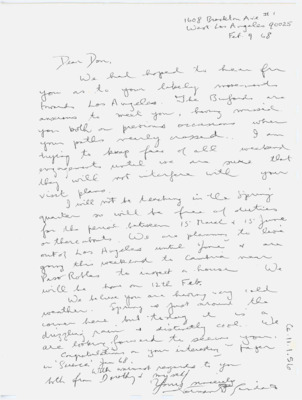 1608 Brockton Ave #1
West Los Angeles 90025
Feb 9 68
Dear Don,
We had hoped to hear from
you as to your likely movement
towards Los Angeles. The are
anxious to meet you, having missed
you both on previous occasions when
your paths nearly crossed. I am
trying to keep free of all weekend
engagements until we are sure that
they will not interfere with your
visit plans.
I will not be teaching in the Spring
quarter so will be free of duties
for the period between 15 March & 15 June
or thereabouts. We are planning to live
out of Los Angeles until June & are
going this weekend to Cambria near
Paso Robles to inspect a house. We
will be home on 12th Feb.
We believe you are having very cold
weather. Spring is just around the
corner here but today it is a
drizzling rain & distinctly cool. We
are looking forward to seeing you.
Congratulations on your interesting paper
in "Science" Jan 68.
With warmest regards to you
both from Dorothy & myself
Yours sincerely